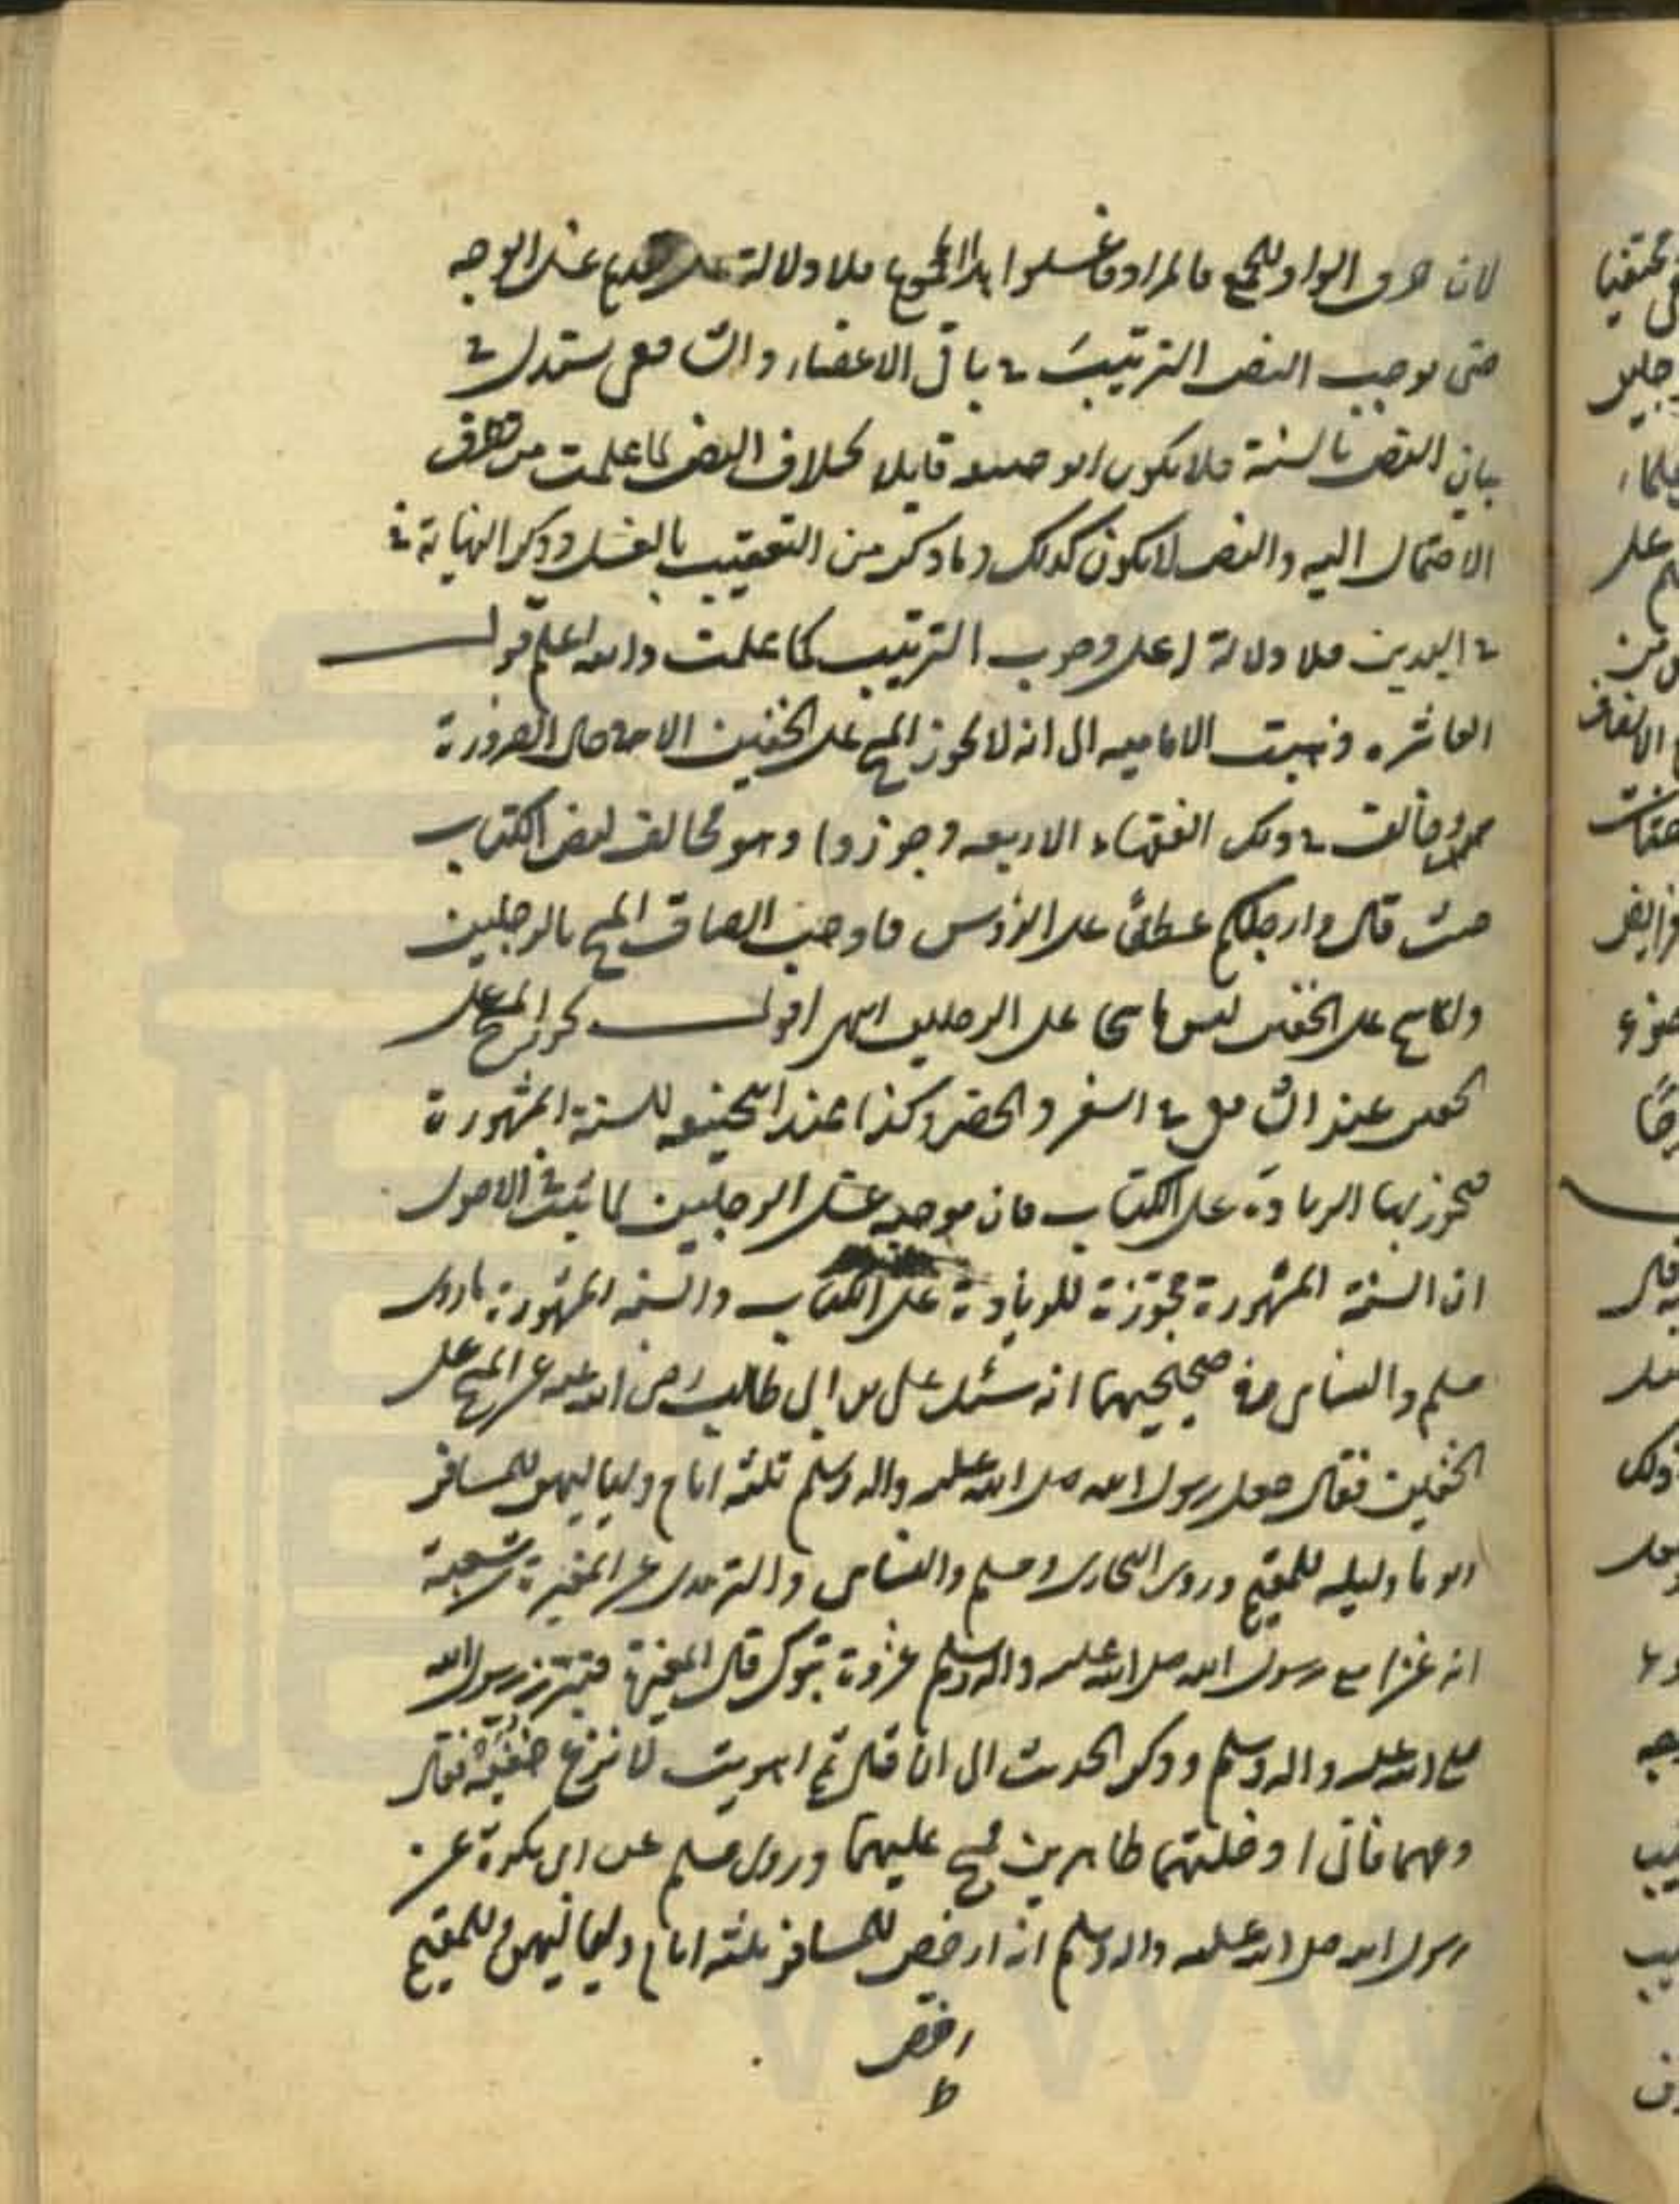 لان حرف الواو للجمع فالمراد فاغسلوا هذا المجموع فلا دلالة على تقديم غسل الوجه
حتى يوجب النص الترتيب في باقي الاعضاء والشافعي يستدل في
بيان النص بالسنة فلا يكون ابو حنيفه قايلا بخلاف النص لما علمت من تطرق
الاحتمال اليه والنص لا يكون كذلك وما ذكر من التعقيب بالغسل وذكر النهاية
في اليدين فلا دلالة على وجوب الترتيب كما علمت والله اعلم قوله
العاشره ذهبت الاماميه الى انه لا يجوز المسح على الخفين الا في حال الضرورة
وخالف في ذلك الفقهاء الاربعه وجوزوا وهو مخالف لنص الكتاب
حيث قال وارجلكم عطفًا على الرؤس فاوجب الصاق المسح بالرجلين
والماسح على الخفين ليس ماسحا على الرجلين انتهى اقول يجوز المسح على
الخفين عند الشافعي في السفر والحضر وكذا عند ابي حنيفه للسنة المشهورة
فيجوز بها الزيادة على الكتاب فان موجبه غسل الرجلين لما ثبت في الاصول
ان السنة المشهورة مجوزة للزيادة على الكتاب والسنه المشهورة ما روى
مسلم والنسائي في صحيحيهما انه سئل علي بن ابي طالب رضى الله عنه عن المسح على
الخفين فقال جعل رسول الله صلى الله عليه واله وسلم ثلثه ايام ولياليهن للمسافر
ويوما وليله للمقيم وروى البخارى ومسلم والنسائي والترمذى عن المغيرة بن شعبة
انه غزا مع رسول الله صلى الله عليه واله وسلم غزوة تبوك قال المغيرة فتبرز رسول الله
صلى الله عليه واله وسلم وذكر الحديث الى ان قال ثم اهويت لانزع خفيه فقال
دعهما فاني ادخلتهما طاهرين فمسح عليهما وروى مسلم عن ابى بكرة عن
رسول الله صلى الله عليه واله وسلم انه ارخص للمسافر ثلثه ايام ولياليهن وللمقيم
رخص